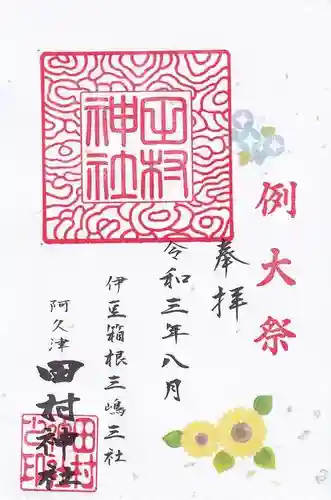 例大祭
奉拝
令和三年八月
伊豆箱根三嶋三社
阿久津
田村神社
田村神社